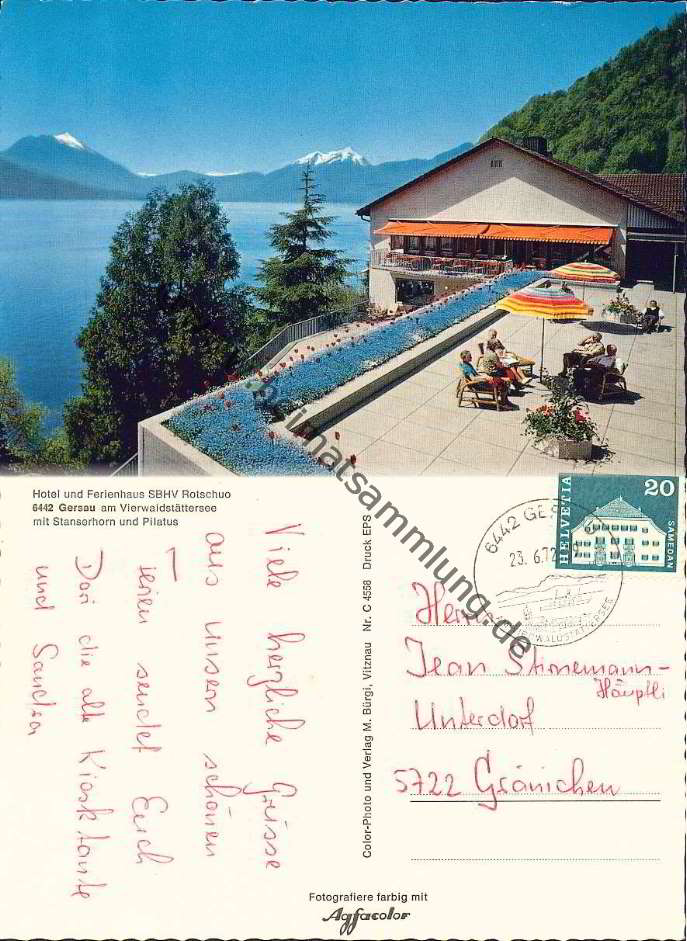 Hotel und Ferienhaus SBHV Rotschuo
6442 Gersau am Vierwaldstättersee
mit Stanserhorn und Pilatus
Viele herzliche Grüsse
aus unsern schönen
Ferien sendet Euch
Dori die alte Kiosktante
und Sandra
Color-Photo und Verlag M. Bürgi, Vitznau Nr. C 4558 Druck EPS
HELVETIA
20
SAMEDAN
6442 GE
23. 6.72
VIERWALDSTÄTTERSEE
Herrn
Jean Stirnemann-
Häuptli
Unterdorf
5722 Gränichen
Fotografiere farbig mit
Agfacolor
heimatsammlung.de